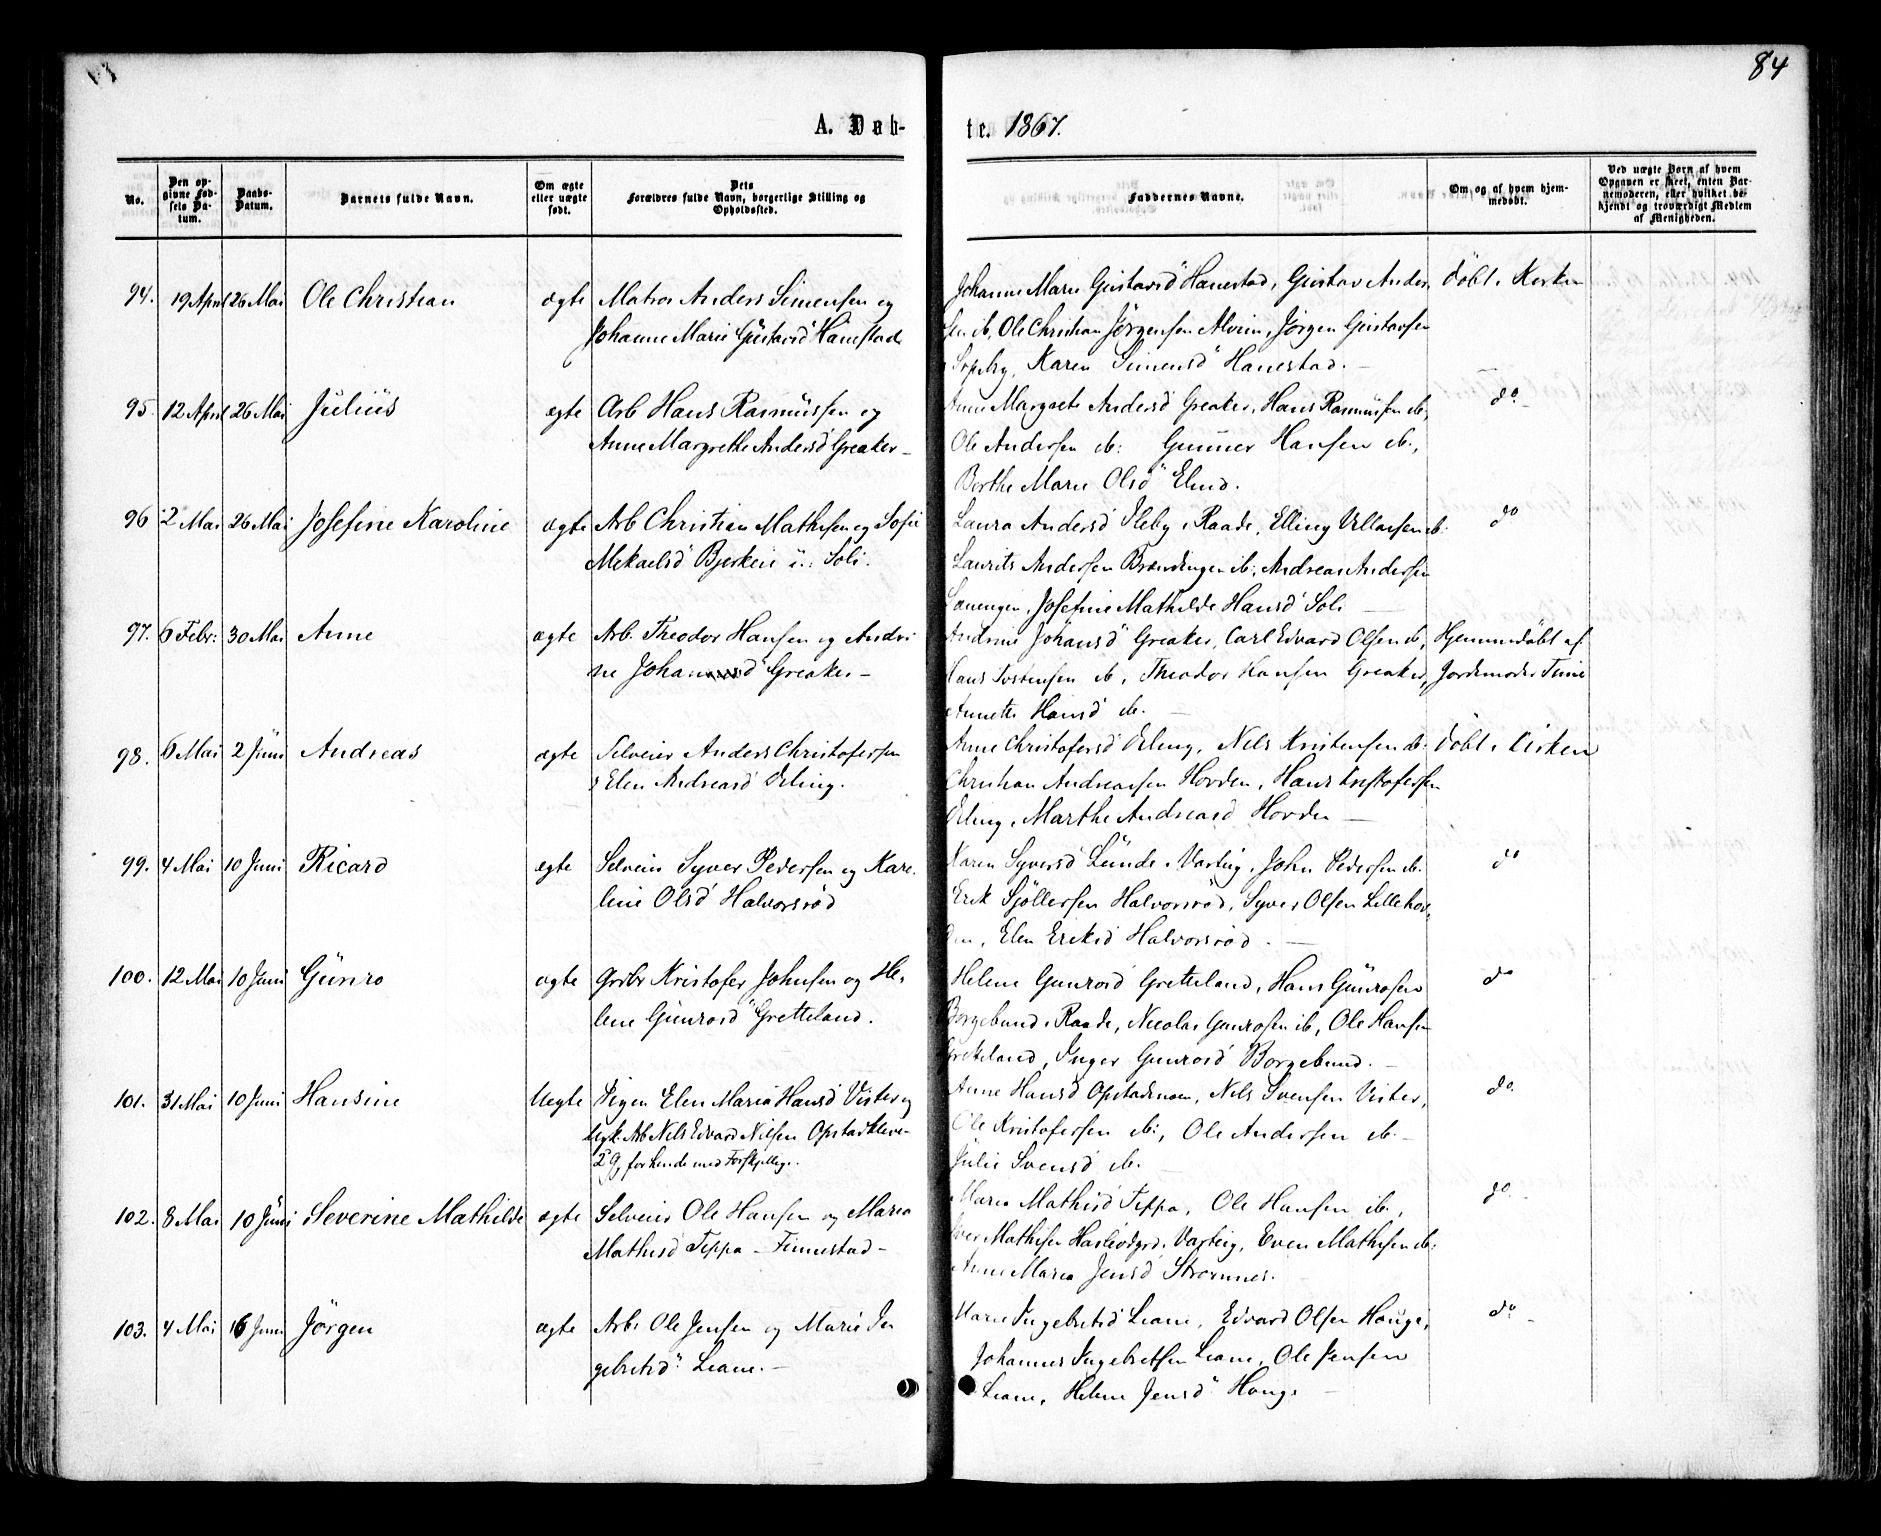 84
A. Døb-
te. 1867.
No.
Den op-
givne Fød-
sels Da-
tum.
Daabs-
Datum.
Barnets fulde Navn.
Om ægte
eller uægte
født.
Dets
Forældres fulde Navn, borgerlige Stilling og
Opholdssted.
Faddernes Navne.
Om og af hvem hjem-
medøbt.
Ved uægte Børn af hvem
Opgaven er skeet, enten Bar-
nemoderen, eller hvilket be-
kjendt og troværdigt Medlem
af Menigheden.
94. 19 April 26 Mai Ole Christian ægte Matros Anders Simensen og
Johanne Marie Gustavsd Hanestad
Johanne Marie Gustavsd Hanestad, Gustav Ander-
sen ib, Ole Christian Jørgensen Alvim, Jørgen Gustavsen
Karen Simensd Hanestad.
Døbt i Kirken
95. 12 April 26 Mai Julius ægte Arb Hans Rasmussen og
Anne Margrethe Andersd Greaker
Anne Margrete Andersd Greaker, Hans Rasmussen ib,
Ole Andersen ib: Gunner Hansen ib,
Berthe Marie Olsd
do
96 2 Mai 26 Mai Josefine Karoline ægte Arb Christian Mathisen og Sofie
Mekaelsd Bjerkeii u: Soli.
Laura Andersd i Raade, Elling ib.
Laurits Andersen ib, Andreas Andersen
Josefine Mathilde Hansd Soli
do
97. 6 Febr: 30 Mai Anne ægte Arb. Theodor Hansen og Andri
ne Johansd Greaker
Andrine Johansd Greaker, Carl Edvard Olsen ib,
Hans Tostensen ib, Theodor Hansen Greaker,
Annette Hansd ib.
Hjemmedøbt af
Jordemoder Tine
98. 6 Mai 2 Juni Andreas ægte Selveier Anders Christofersen
& Elen Andreasd
Anne Christofersd Nels Kristensen ib.
Christian Andreassen Hovden, Hans Kristofersen
Marthe Andreasd Hovden
Døbt i Kirken
99. 4 Mai 10 Juni Ricard ægte Selveier Syver Pedersen og Kare-
line Olsd Halvorsrød
Karen Syversd Lunde i Varteig, John Pedersen ib.
Erik Halvorsrød, Syver Olsen Lillehov-
den, Elen Eriksd Halvorsrød.
do
100. 12 Mai 10 Juni Gunro ægte Grdbr Kristofer Johnsen og He-
lene Gunrosd Gretteland.
Helene Gunrosd Gretteland, Hans Gunrosen
Borgebund i Raade, Nicolai Gunrosen ib, Ole Hansen
Gretteland, Inger Gunrosd Borgebund.
do
101. 31 Mai 10 Juni Hansine Uegte Pigen Elen Maria Hansd Vister og
Ugk. Arb Nels Edvard Nielsen Opstadkleve-
2 G, for hende med Forskjellig.
Anne Hansd Opstadmoen, Nels Svensen Vister,
Ole Kristofersen ib:, Ole Andersen ib.
Julie Svensd ib.
do.
102. 8 Mai 10 Juni Severine Mathilde ægte Selveier Ole Hansen og Maria
Mathisd Teppa - Finnestad
Maria Mathisd Teppa, Ole Hansen ib.,
Iver Mathisen i Varteig, Even Mathisen ib:
Anne Maria Jensd Strømnes.
do.
103. 4 Mai 16 Juni Jørgen ægte Arb: Ole Jensen og Marie In
gebretsd Leane.
Marie Ingebretsd Leane, Edvard Olsen Hauge,
Johannes Ingebretsen Leane, Ole Jensen
Leane, Helene Jensd Hauge
do